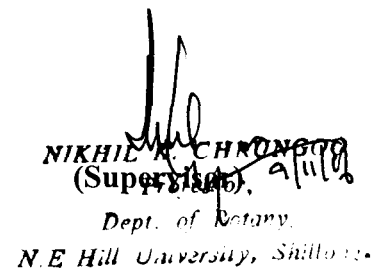 NIKHIL K. CHRUNGOO
(Supervisor)
Professor,
Dept. of Botany,
N.E Hill University, Shillong.
9/11/06